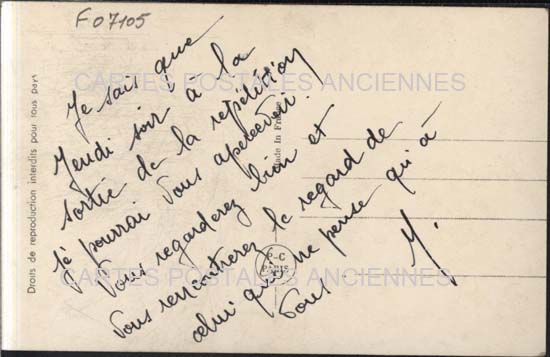 F07105
CARTES POSTALES ANCIENNES
Je sais que
Jeudi soir à la
sortie de la répétition
Je pourrai vous apercevoir.
Vous regarderez bien et
vous rencontrerez le regard de
celui qui ne pense qu'à
vous.
M.
CARTES POSTALES ANCIENNES
Droits de reproduction interdits pour tous pays
Made in France
P-C
PARIS